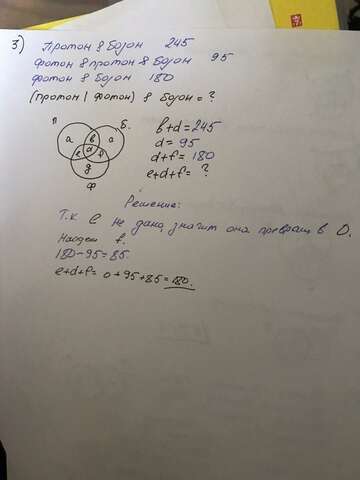 3) Протон & Бозон 245
Фотон & протон & Бозон 95
фотон & Бозон 180
(протон | фотон) & Бозон = ?
П
Б.
a b c
e d f
g
Ф
b+d=245
d=95
d+f=180
e+d+f=?
Решение:
Т.к e не дано, значит она превращ в 0.
Найдем f.
180-95=85.
e+d+f= 0+95+85=180.